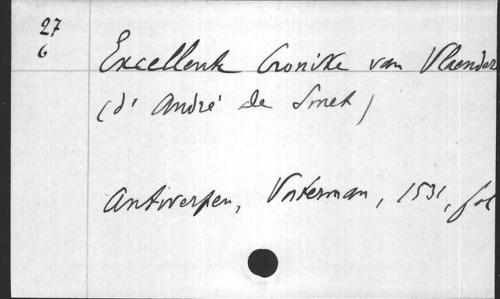 27
6
Excellente Cronike van Vlaender
(d' André de Smet)
Antwerpen, Vorsterman, 1531, fol